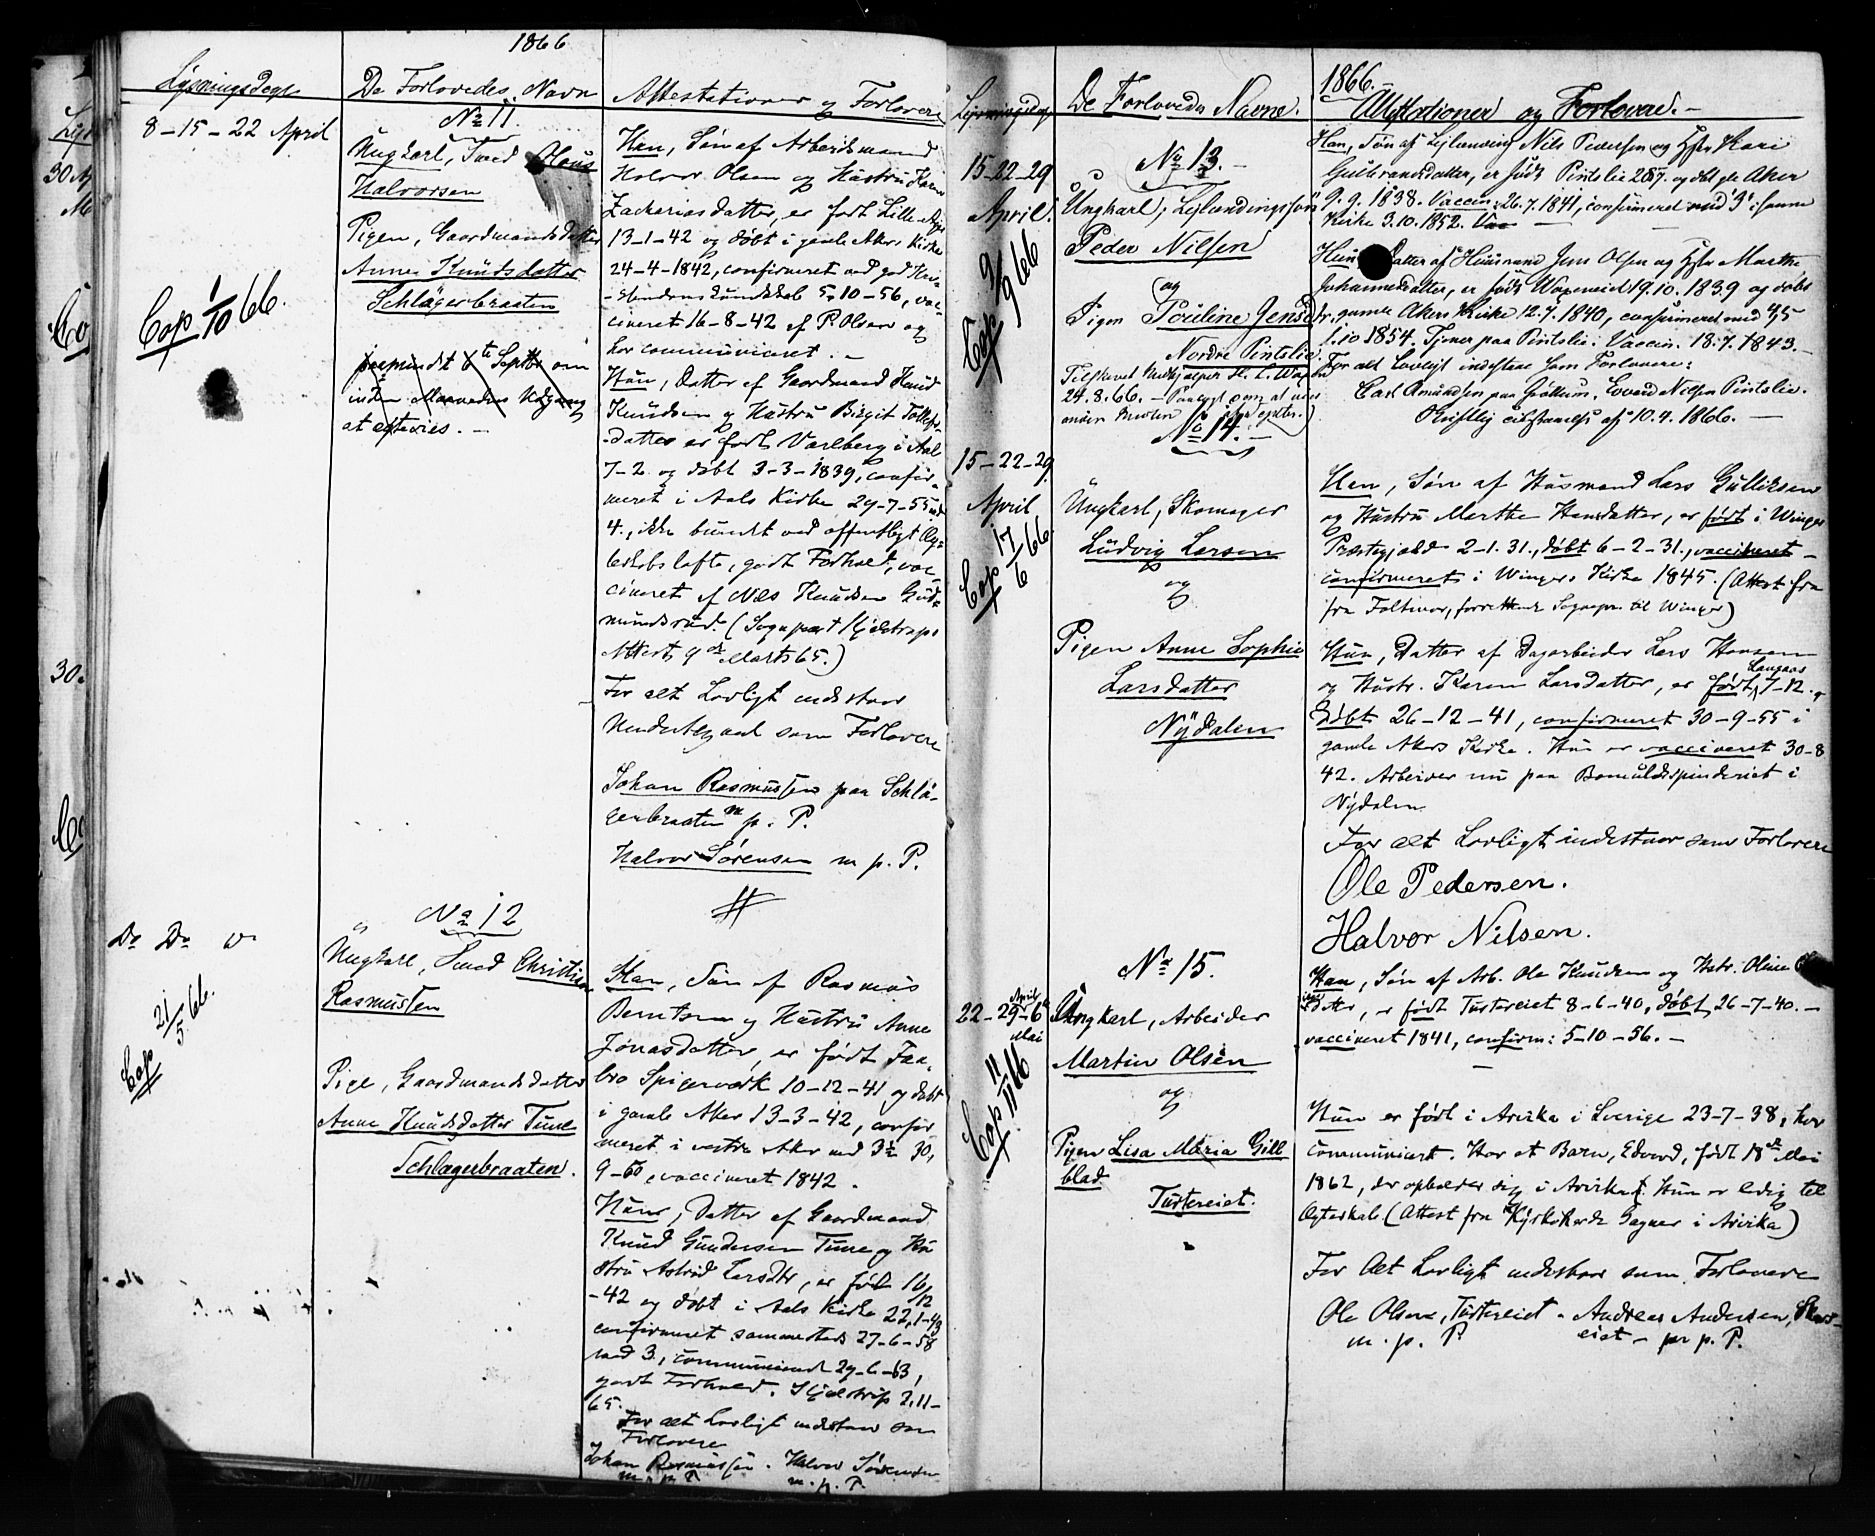 1866
Lysningsdage
De Forlovedes Navn
Attestationer og Forlovere
8-15-22 April
Cop 1/10 66.
No 11.
Ungkarl, Smed
Halvorsen
Pigen, Gaardmandsdatter
Anne Knudsdatter
Schlägerbraaten
inden Maanedens Udgang
Han, Søn af Arbeidsmand
Halvor Olsen og Hustru Karen
Zachariasdatter, er født Lille
13-1-42 og døbt i gamle Akers Kirke
24-4-1842, confirmeret med god Kri-
stendomskundskab 5-10-56, vac-
cineret 16-8-42 af P. Olsen og
har communiceret. -
Hun, Datter af Gaardmand Knud
Knudsen og Hustru Birgit Tollefs-
datter er født Varlberg i Aal
7-2 og døbt 3-3-1839, confir-
meret i Aals Kirke 29-7-55 med
4., ikke bundet ved offentligt Æg-
teskabsløfte, godt Forhold, vac-
cineret af Nils Knudsen Gud-
mundsrud. (Sognepræst Hjelstrups
Attest 9de Marts 65.)
For alt Lovligt indestaar
Undertegnede som Forlovere
Johan Rasmussen paa Schlä-
gerbraaten m. p. P.
Halvor Sørensen m. p. P.
Do Do Do
Cop 21/5 66.
No 12
Ungkarl, Smed Christian
Rasmussen
Pige, Gaardmandsdatter
Anne Knudsdatter Tune
Schlagerbraaten.
Han, Søn af Rasmus
Berntsen og Hustru Anne
Jonasdatter, er født Faa-
bro Spigerværk 10-12-41 og døbt
i gamle Aker 13-3-42, confir
meret i vestre Aker med 3½ 30,
9-60, vaccineret 1842.
Hun, Datter af Gaardmand
Knud Gundersen Tune og Hu
stru Astrid Larsdtr, er født 16/12
-42 og døbt i Aals Kirke 22,1-43
confirmeret sammesteds 27-6-58
med 3, communiceret 29-6-63,
godt Forhold. Hjelstrup 2,11-
65.
For alt Lovligt indestaar som
Forlovere
Johan Rasmussen. Halvor Sørensen
m. p. P. m. p. P.
1866.-
Lysningsdage
De Forlovedes Navne.
Attestationer og Forlovere.-
15-22-29
April.
Cop 9/9 66
No 13.-
Ungkarl, Leilændingssøn
Peder Nilsen
og
Pigen Pouline Jensdtr.
Nordre Pintslie
24.8.66.
Han, Søn af Leilænding Nils Pedersen og Hstr Kari
Gulbrandsdatter, er født Pintslie og døbt gle Aker
9.9.1838. Vaccin: 26.7.1841, confirmeret med 3 i samme
Kirke 3.10.1852.
Hun Datter af Huusmand Jens Olsen og Hstr Marthe
Johannesdatter, er født Woxeneiet 19.10.1839 og døbt
gamle Akers Kirke 12.7.1840, confirmeret med 4,5
1.10 1854. Tjener paa Pintslie. Vaccin. 18.7.1843.-
For alt Lovligt indestaae som Forlovere:
Carl Amundsen paa Edvard Nilsen Pintslie.
Skriftlig af 10.4.1866. -
15-22-29
April
Cop 17/6 66
No 14.-
Ungkarl, Skomager
Ludvig Larsen
og
Pigen Anne Sophie
Larsdatter
Nydalen
Han, Søn af Husmand Lars Gulliksen
og Hustru Marthe Hansdatter, er født i Winger
Præstegjæld 2-1.31., døbt 6-2-31., vaccineret -
confirmeret i Wingers Kirke 1845. (Attest fra
til Winger)
Hun, Datter af Dagarbeider Lars Hansen
og Hustr. Karen Larsdatter, er født Langaas 7-12.,
døbt 26-12-41, confirmeret 30-9-55 i
gamle Akers Kirke. Hun er vaccineret 30-8
42. Arbeider nu paa Bomuldsspinderiet i
Nydalen
For alt Lovligt indestaar som Forlovere
Ole Pedersen.
Halvor Nilsen.
22-29 April-6te
Mai
Cop 11/11 66
No 15.
Ungkarl, Arbeider
Martin Olsen
og
Pigen Lisa Maria Gill
blad
Tuftereiet.
Han, Søn af Arb. Ole Knudsen og Hstr. Oline
er født Tuftereiet 8-6-40, døbt 26-7-40.-
vaccineret 1841, confirm: 5-10-56.-
Hun er født i Arvika i Sverige 23-7-38, har
communiceret. Har et Barn, Edvard, født 18de Mai
1862, der opholder sig i Arvika. Hun er ledig til
Ægteskab. (Attest fra Kyrkoherde Gagner i Arvika)
For Alt Lovligt indestaar som Forlovere
Ole Olsen, Tuftereiet. Andreas Andersen,
m. p. P. eiet - m. p. P.